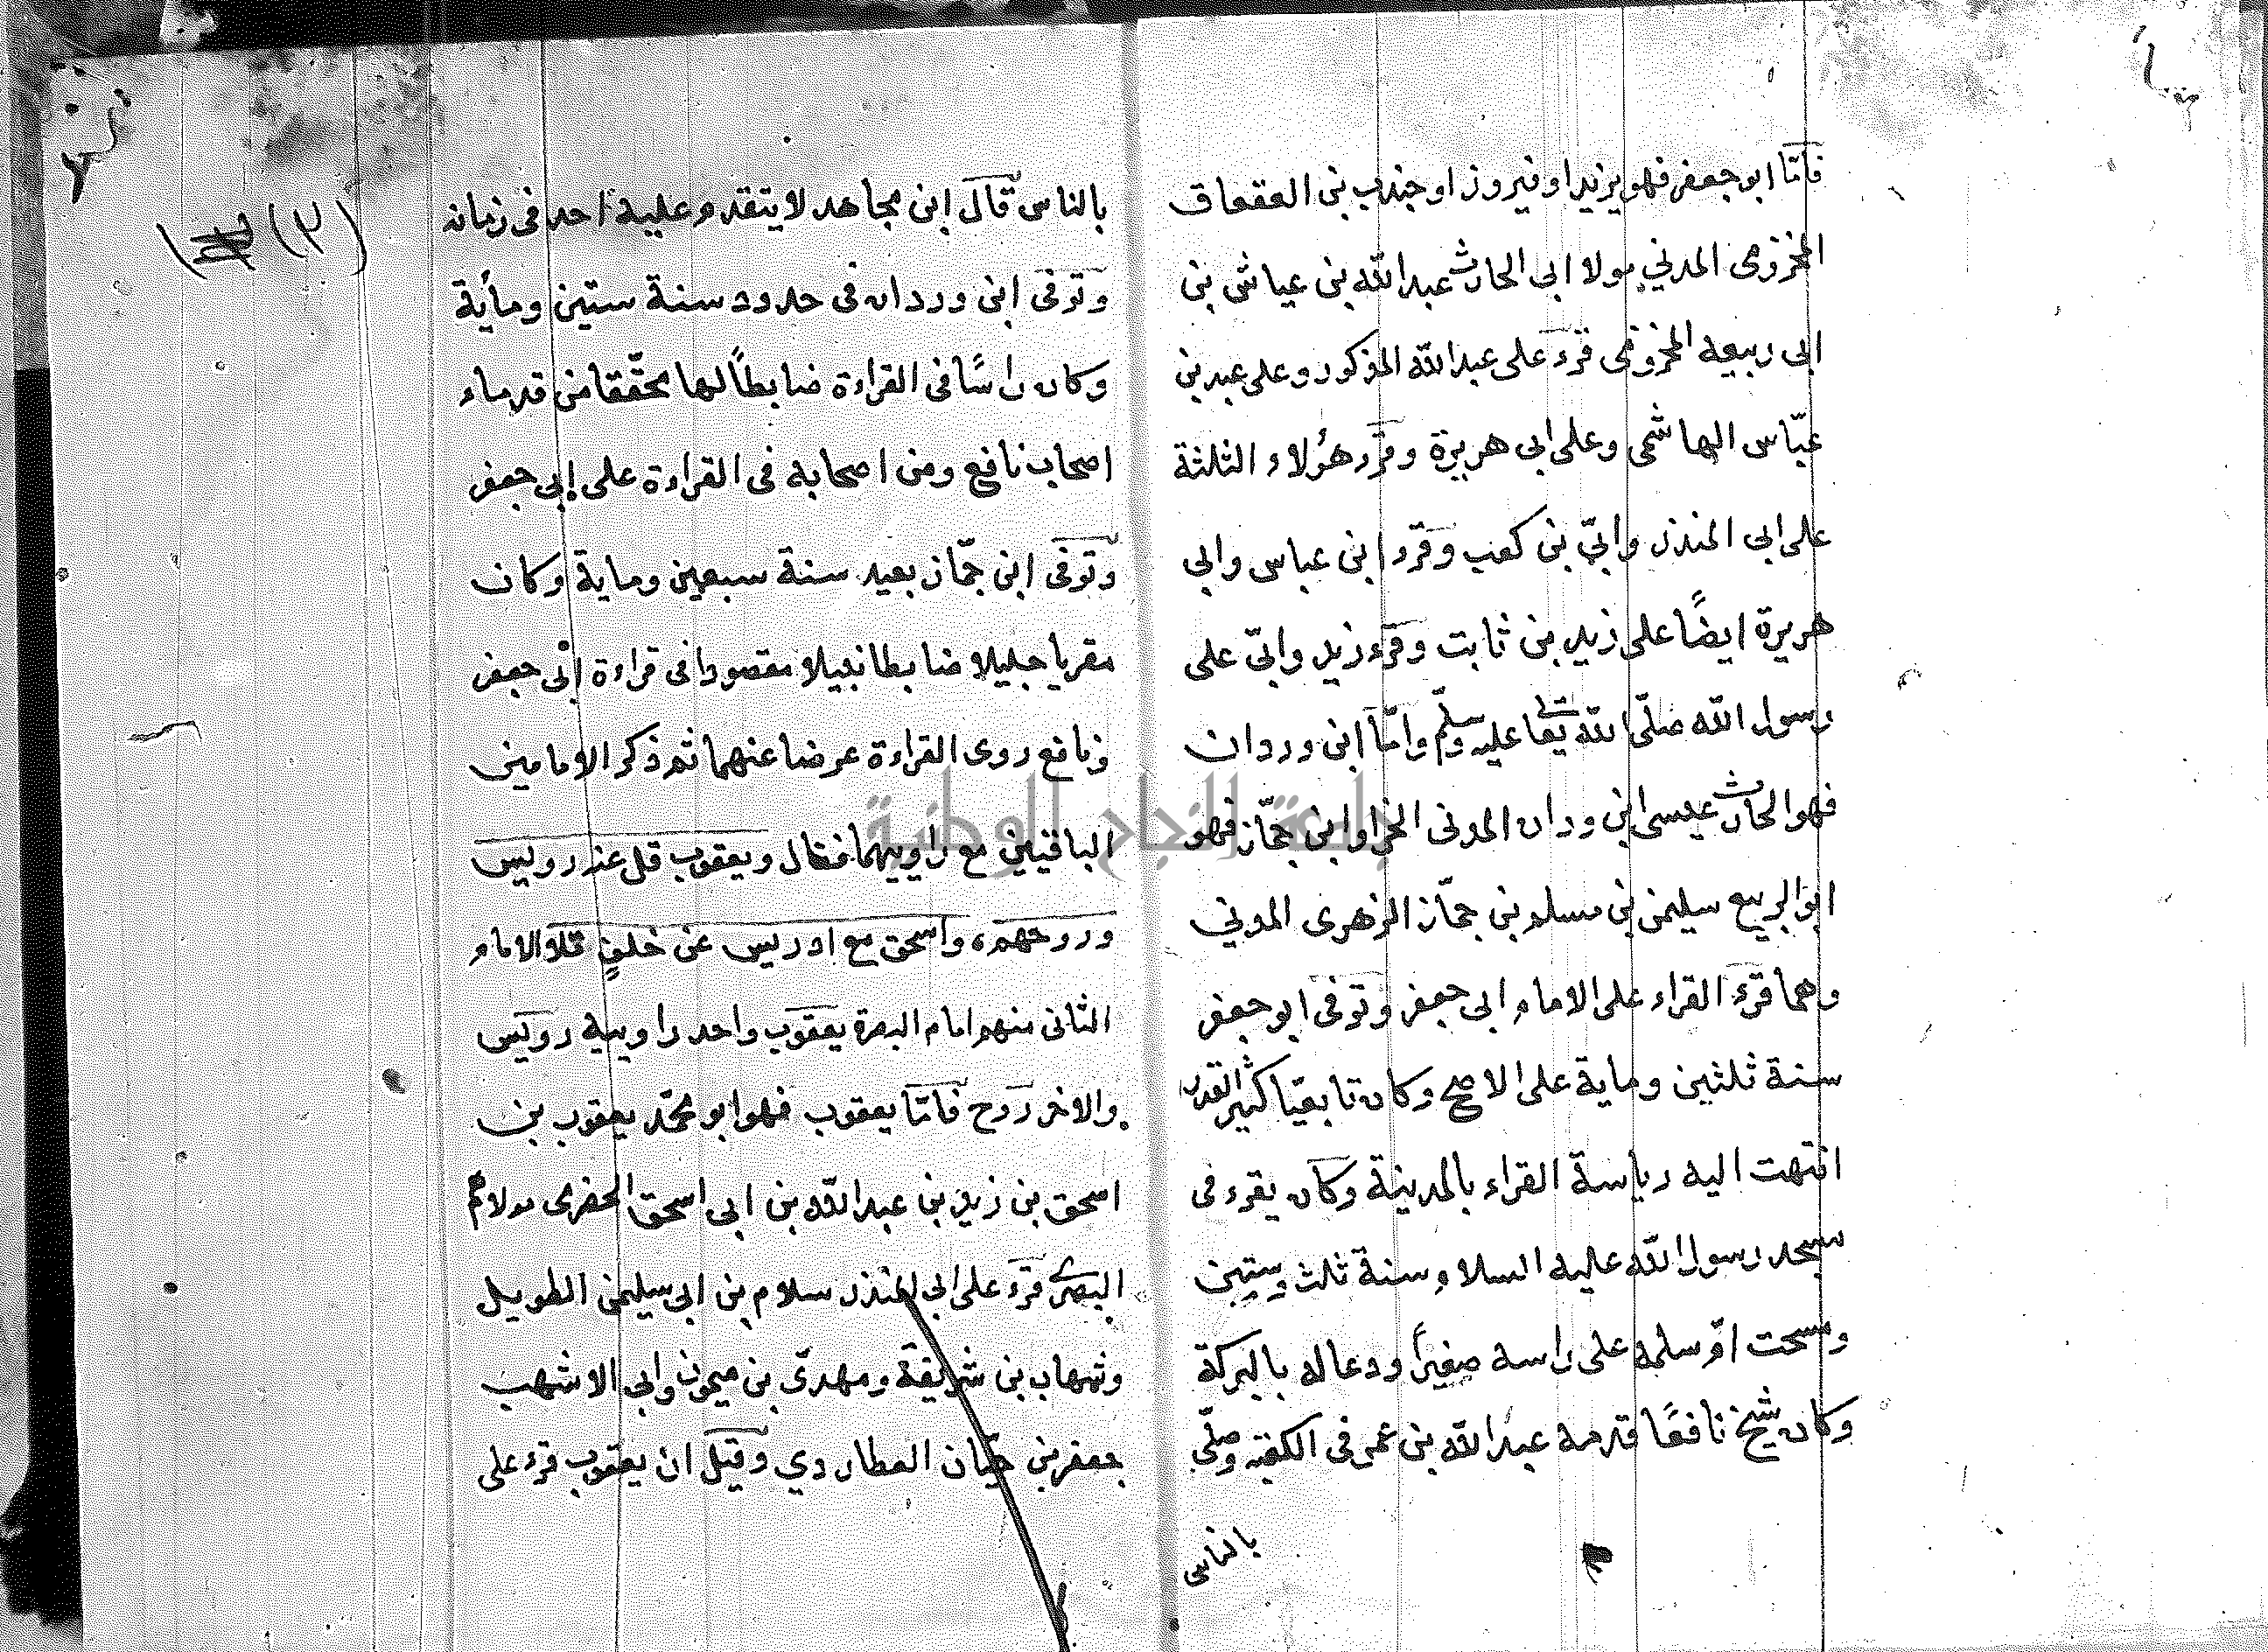 فامّا ابو جعفر فهو يزيد او فيروز او جندب بن العقعاق
المخزومى المدني مولا ابى الحارث عبد الله بن عياش بن
ابى ربيعه المخزومى قرء على عبد الله المذكور وعلى عبد بن
عبّاس الهاشمى وعلى ابى هريرة وقرء هؤلاء الثلثة
على ابى المنذر وابيّ بن كعب وقرء ابن عباس وابى
هريرة ايضًا على زيد بن ثابت وقرء زيد وابيّ على
رسول الله صلّى الله تعا عليه وسلّم وامّا ابن وردان
فهو الحارث عيسى ابن وردان المدنى الخزا وابن جمّاز فهو
ابو الربيع سليمن بن مسلم بن جمّاز الزهرى المدني
وهما قرء القراء على الامام ابى جعفر وتوفى ابو جعفر
سنة ثلثين وماية على الاصح وكان تابعيّا كثير القدر
انتهت اليه رياسة القراء بالمدينة وكان يقرء فى
مسجد رسول الله عليه السلام سنة ثلث وستين
ومسحت امّ سلمه على راسه صغيرًا ودعا له بالبركة
وكان شيخ نافعًا قدمه عبد الله بن عمر فى الكعبه وصلّى
بالناس
بالناس قال ابن مجاهد لا يتقدم عليه احد فى زمانه
وتوفى ابن وردان فى حدود سنة ستين ومأية
وكان راسًا فى القراءة ضابطًا لها محقّقا من قدماء
اصحاب نافع ومن اصحابه فى القراءة على ابى جعفر
وتوفى ابن جمّاز بعيد سنة سبعين وماية وكان
مقريا جليلا ضابطا نبيلا مقصودا فى قراءة ابى جعفر
ونافع روى القراءة عرضا عنهما ثم ذكر الامامين
الباقيين مع راوييهما فقال ويعقوب قل عنه رويس
وروحهم واسحق مع ادريس عن خلفٍ تلا الامام
الثانى منهم امام البصرة يعقوب واحد راوييه رويس
والاخر روح فامّا يعقوب فهو ابو محمّد يعقوب بن
اسحق بن زيد بن عبد الله بن ابى اسحق الحضرمى مولاهم
البصرى قرء على ابى المنذر سلام بن ابى سليمن الطويل
وشهاب بن شريفة ومهدىّ بن ميمون وابى الاشهب
جعفر بن حيّان العطاردي وقيل ان يعقوب قرء على
(٢)
جامعة النجاح الوطنية